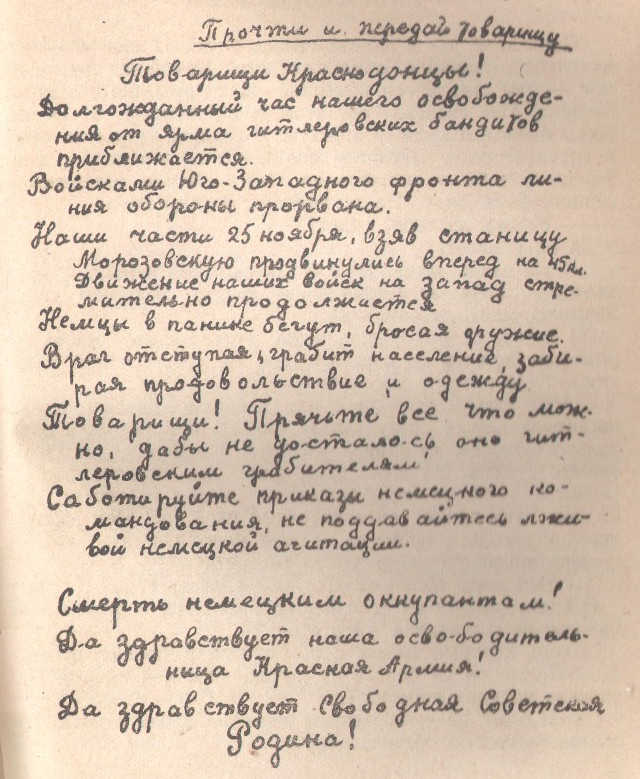 Прочти и передай товарищу
Товарищи Краснодонцы!
Долгожданный час нашего освобожде-
ния от ярма гитлеровских бандитов
приближается.
Войсками Юго-Западного фронта ли-
ния обороны прорвана.
Наши части 25 ноября, взяв станицу
Морозовскую продвинулись вперед на 45 км.
Движение наших войск на запад стре-
мительно продолжается
Немцы в панике бегут, бросая оружие.
Враг отступая, грабит население, заби-
рая продовольствие и одежду
Товарищи! Прячьте все что мож-
но, дабы не досталось оно гит-
леровским грабителям,
Саботируйте приказы немецкого ко-
мандования, не поддавайтесь лжи-
вой немецкой агитации.
Смерть немецким оккупантам!
Да здравствует наша освободитель-
ница Красная Армия!
Да здравствует свободная Советская
Родина!